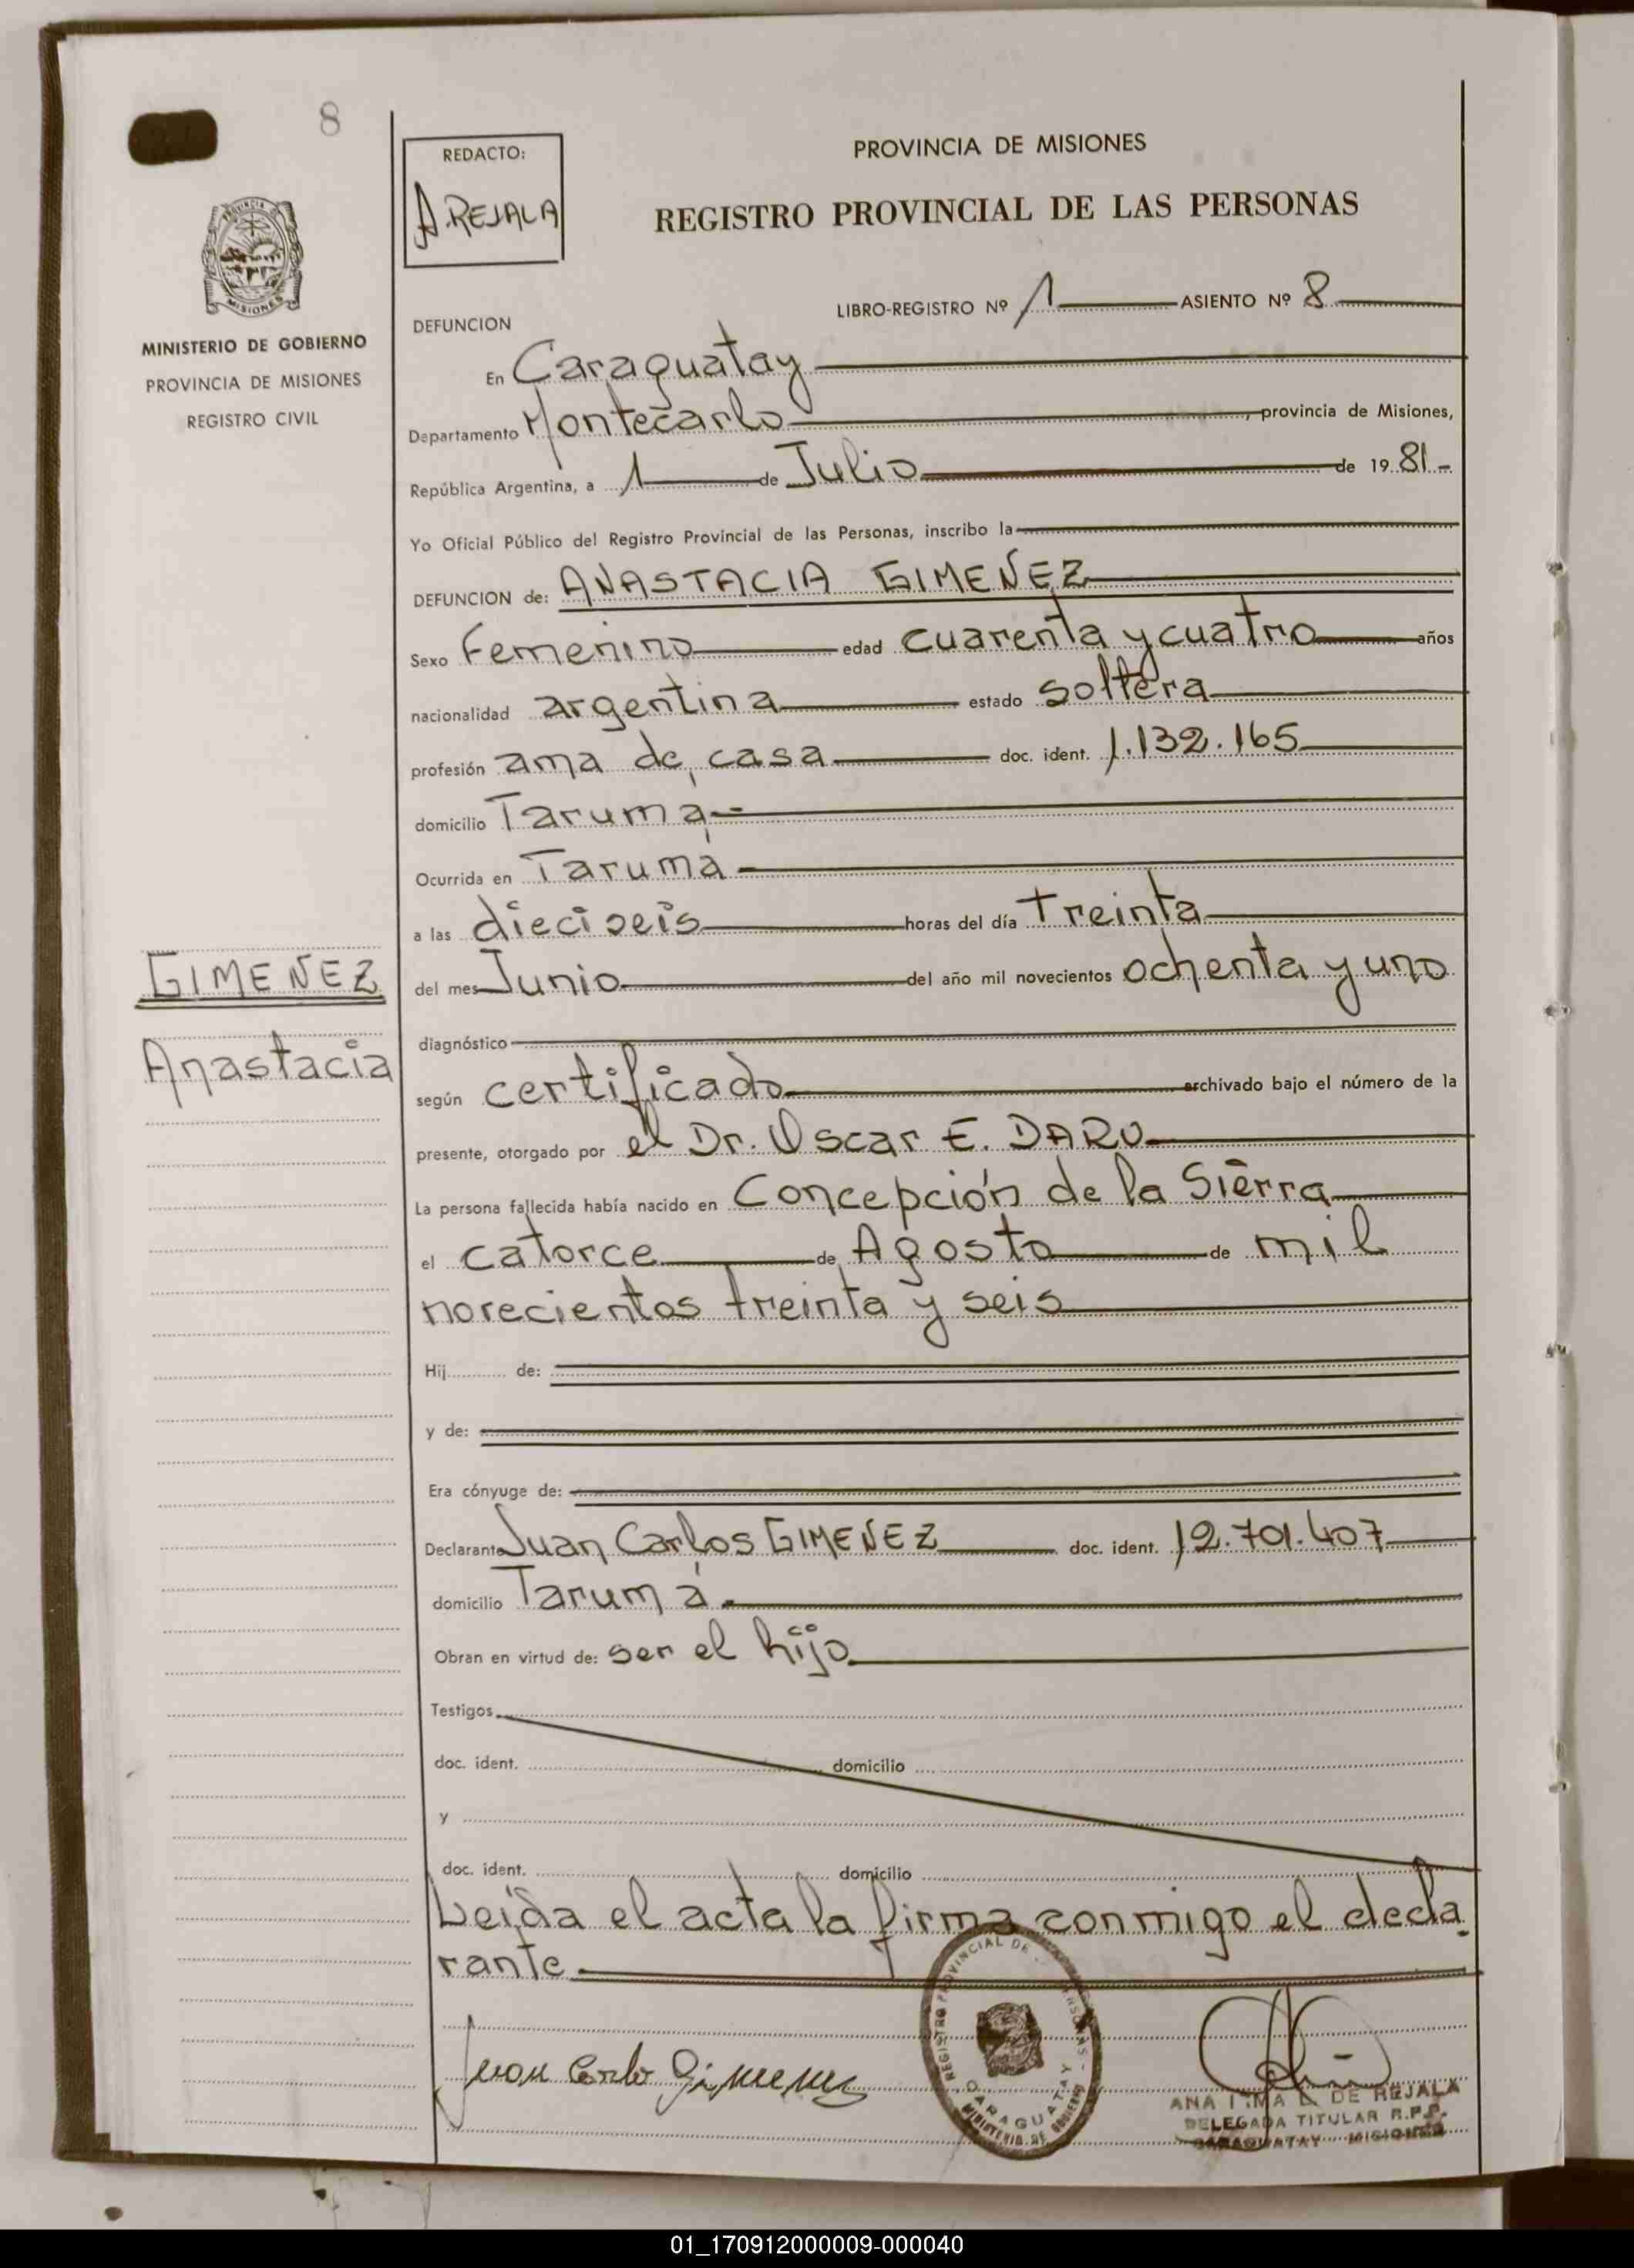 8
REDACTO:
A. REJALA
PROVINCIA DE MISIONES
REGISTRO PROVINCIAL DE LAS PERSONAS
PROVINCIA
MISIONES
MINISTERIO DE GOBIERNO
PROVINCIA DE MISIONES
REGISTRO CIVIL
LIBRO-REGISTRO Nº 1 ASIENTO Nº 8
DEFUNCION
En Caraguatay
Departamento Montecarlo, provincia de Misiones,
República Argentina, a 1 de Julio de 1981-
Yo Oficial Público del Registro Provincial de las Personas, inscribo la
DEFUNCION de: ANASTACIA GIMENEZ
Sexo Femenino edad cuarenta y cuatro años
nacionalidad argentina estado soltera
profesión ama de casa doc. ident. 1.132.165
domicilio Tarumá
Ocurrida en Tarumá
a las dieciseis horas del día treinta
del mes Junio del año mil novecientos ochenta y uno
GIMENEZ
Anastacia
diagnóstico
según certificado archivado bajo el número de la
presente, otorgado por el Dr. Oscar E. DARU
La persona fallecida había nacido en Concepción de la Sierra
el catorce de Agosto de mil
novecientos treinta y seis
Hij de:
y de:
Era cónyuge de:
Declarante Juan Carlos GIMENEZ doc. ident. 12.701.407
domicilio Tarumá
Obran en virtud de: ser el hijo
Testigos
doc. ident. domicilio
y
doc. ident. domicilio
Leída el acta la firma conmigo el decla
rante.
Juan Carlos Gimenez
REGISTRO PROVINCIAL DE PERSONAS
CARAGUATAY
MINISTERIO DE GOBIERNO
ANA DE REJALA
DELEGADA TITULAR R.P.P.
CARAGUATAY MISIONES
01_170912000009-000040